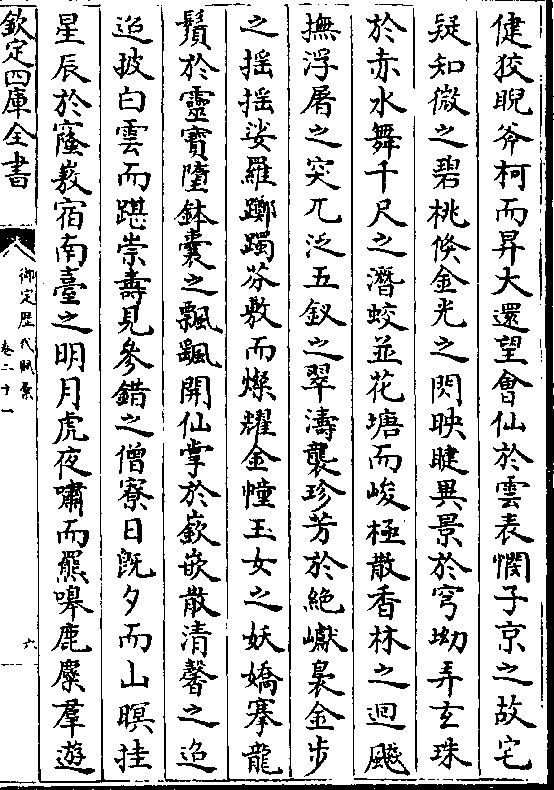 健狡睨斧柯而昇大還望會仙於雲表憫子京之故宅
疑知微之碧桃倐金光之閃映睫異景於穹坳弄玄珠
於赤水舞千尺之潛蛟並花塘而峻極散香林之迴飈
撫浮屠之突兀泛五釵之翠濤襲珍芳於絶巘裊金步
之摇摇娑羅躑躅芬敷而燦耀金幢玉女之妖嬌搴龍
鬚於靈寶墮鉢囊之飄颻開仙掌於嶔嵌散清馨之迢
迢披白雲而踞崇壽見參錯之僧寮日既夕而山暝挂
星辰於㟢嶅宿南臺之明月虎夜嘯而羆嘷鹿麋羣遊
欽定四庫全書
御定歴代賦彚
卷二十一
六